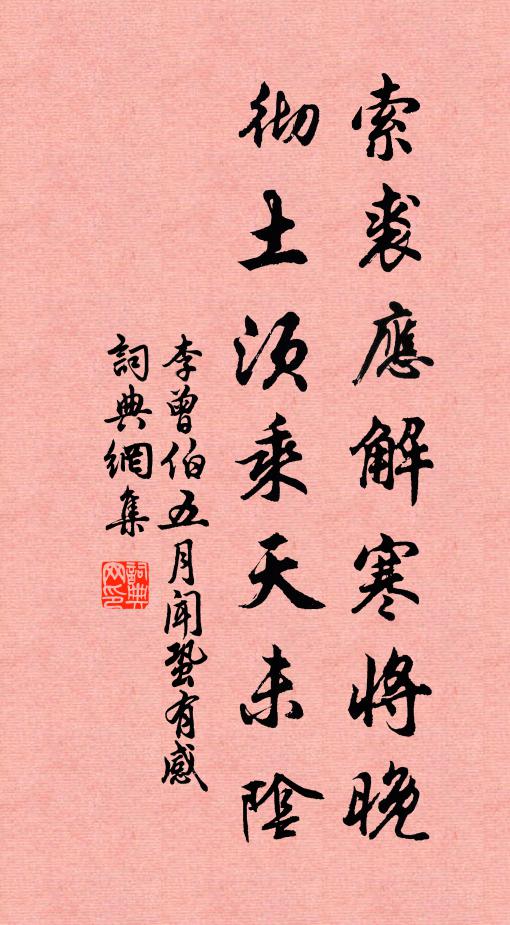 索裘應解寒將晚
彻土須乘天未陰
李曾伯五月闻蛩有感
詞典網集
詞典
网印